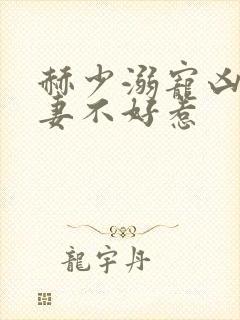 赫少溺寵凶
妻不好惹
龍宇丹